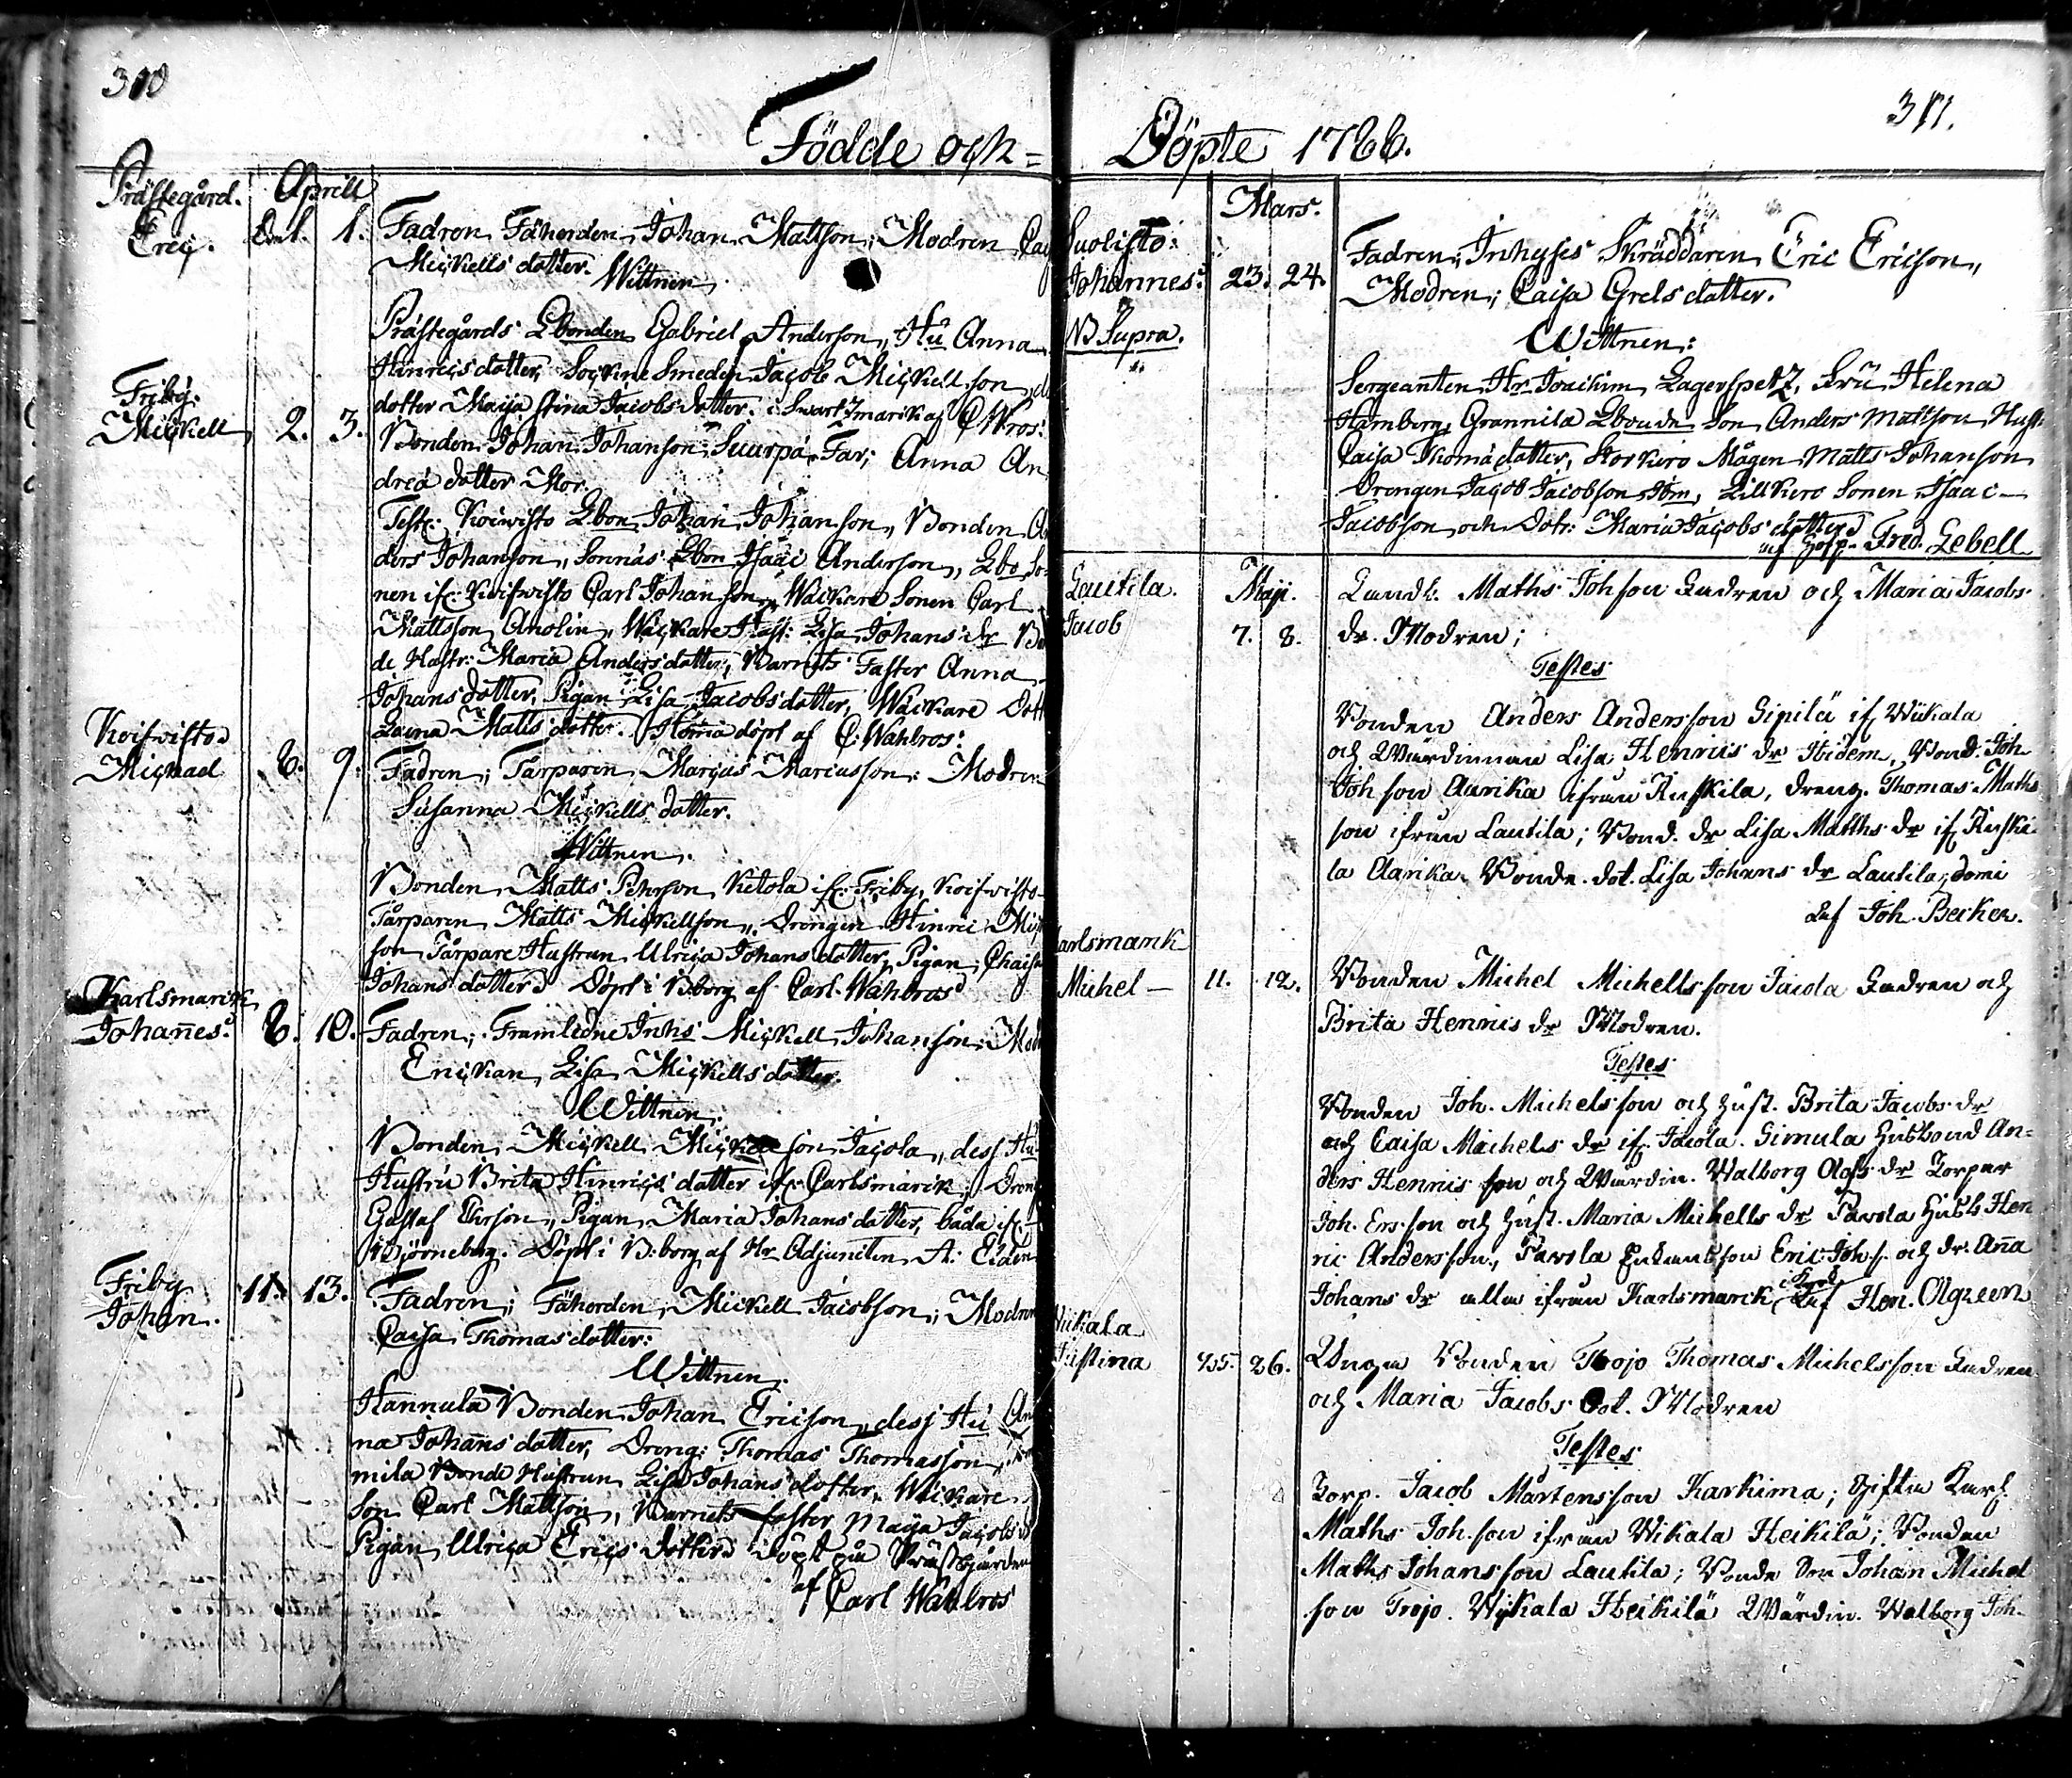 310
Födde och=
Prästegård. Aprill
Eric. 1. Fadren Fäherden Johan Mattson; Modren
Mickells dotter. Wittnen.
Prästegårds Lbonden Gabriel Anderson, Hu Anna
Hinricsdotter, Sockne Smeden Jacob Mickellson,
dotter Maija Stina Jacobs dotter.
Friby.
Mickell 2. 3. Bonden Johan Johanson Suurpä Far; Anna An
dreä dotter Mor.
Test: Koiwisto Lbon Johan Johanson, Bonden
ders Johanson, Sonnäs Lbon Isaac Anderson, Lbo So
nen if: Koifwisto Carl Johanson, Wäckare Sonen Carl
Mattsson Anolin, Wäckare Hust: Lisa Johans dr
de Hustr: Maria Anders dotter, Barnets Faster Anna
Johans dotter, Pigan Lisa Jacobs dotter, Wäckare Dott
Matts dotter. Hema döpt af C: Wahlros:
Koifwisto
Michael 8. 9. Fadren; Tårparen Marcus Marcusson: Modren
Susanna Mickells dotter.
Wittnen.
Bonden Matts Pehrson Ketola if: Friby, Koifwisto
Tårparen Matts Mickellson, Drengen Hinric
son Tårpare Hustrun Ulrica Johans dotter, Pigan
Johans dotter Döpt i B:borg af Carl Wahlros
Karlsmarck
Johañes. 8. 10. Fadren; Framledne Inhs Mickell Johanson;
Enickan Lisa Mickells dotter.
Wittnen.
Bonden Mickell son Jacola, dess
Hustru Brita Hinrics dotter if: Carlsmarck, Dreng
Gustaf Ehrson, Pigan Maria Johans dotter, båda if:
Björneborg. Döpt i B:borg af Hr Adjuncten A:
Friby
Johan. 11. 13. Fadren; Fäherden Mickell Jacobson; Modren
Caisa Thomas dotter:
Wittnen.
Hannula Bonden Johan Ericson, dess Hu An
na Johans dotter, Dreng: Thomas Thomasson,
mila Bonde Hustrun Lisa Johans dotter, Wäckare
Son Carl Mattson, Barnets faster Maija Jacobs
Pigan Ulrica Erics dotter döpt på Prästegården
af Carl Wahlros
311.
Döpte 1786.
Mars.
Suolisto:
Johannes: 23. 24. Fadren; Inhyses Skräddaren Eric Ericson,
Modren; Caisa Grels dotter.
NB Supra.
Wittnen:
Sergeanten Hr Joachim Lagerspetz, Fru Helena
Hamberg, Grannila Lbonde Son Anders Mattson Hustr
Caisa Thomä dotter, Storkiro Mågen Matts Johanson
Drengen Jacob Jacobson Ibm, Lillkiro Sonen Isaac
Jacobson och Dotr: Maria Jacobs dotter
af Fred. Gebell
Lautila. Maji.
Jacob 7. 8. Landb: Maths Johson Fadren och Maria Jacobs
dr. Modren;
Testes
Bonden Anders Andersson Sipilä if Wiikala
och Wärdinnan Lisa Henrics dr Ibidem, Bond. Joh
Joh son Aarika ifrån Ruskila, dreng. Thomas Maths
son ifrån Lautila; Bond. dr Lisa Matths dr if Ruski
la Aarika Bonde. dot. Lisa Johans dr Lautila, domi
af Joh. Becker.
arlsmark
Michel — 11. 12. Bonden Michel Michellsson Jacola Fadren och
Brita Henrics dr Modren.
Testes
Bonden Joh. Michelsson och Hust. Brita Jacobs dr
och Caisa Michels dr if Jacola. Simula Husbond An=
ders Henricsson och Wärdin. Walborg Olofs dr Torpar
Joh. Ersson och Hust. Maria Michells dr Parola Husb Hen
ric Andersson, Parola Eric Joh. s. och dr. Aña
Johans dr alla ifrån Karlsmarck af Hen. Algreen
Wiikala
Justina 25. 26. Unga Bonden Trojo Thomas Michelsson Fadren
och Maria Jacobs Dot. Modren
Testes
Torp. Jacob Mårtensson Karkima; Gifta Karl
Maths Joh.son ifrån Wikala Heikilä; Bonden
Maths Johansson Lautila; Bonde Son Johan Michel
son Trojo. Wikala Heikilä Wärdin. Walborg Joh.